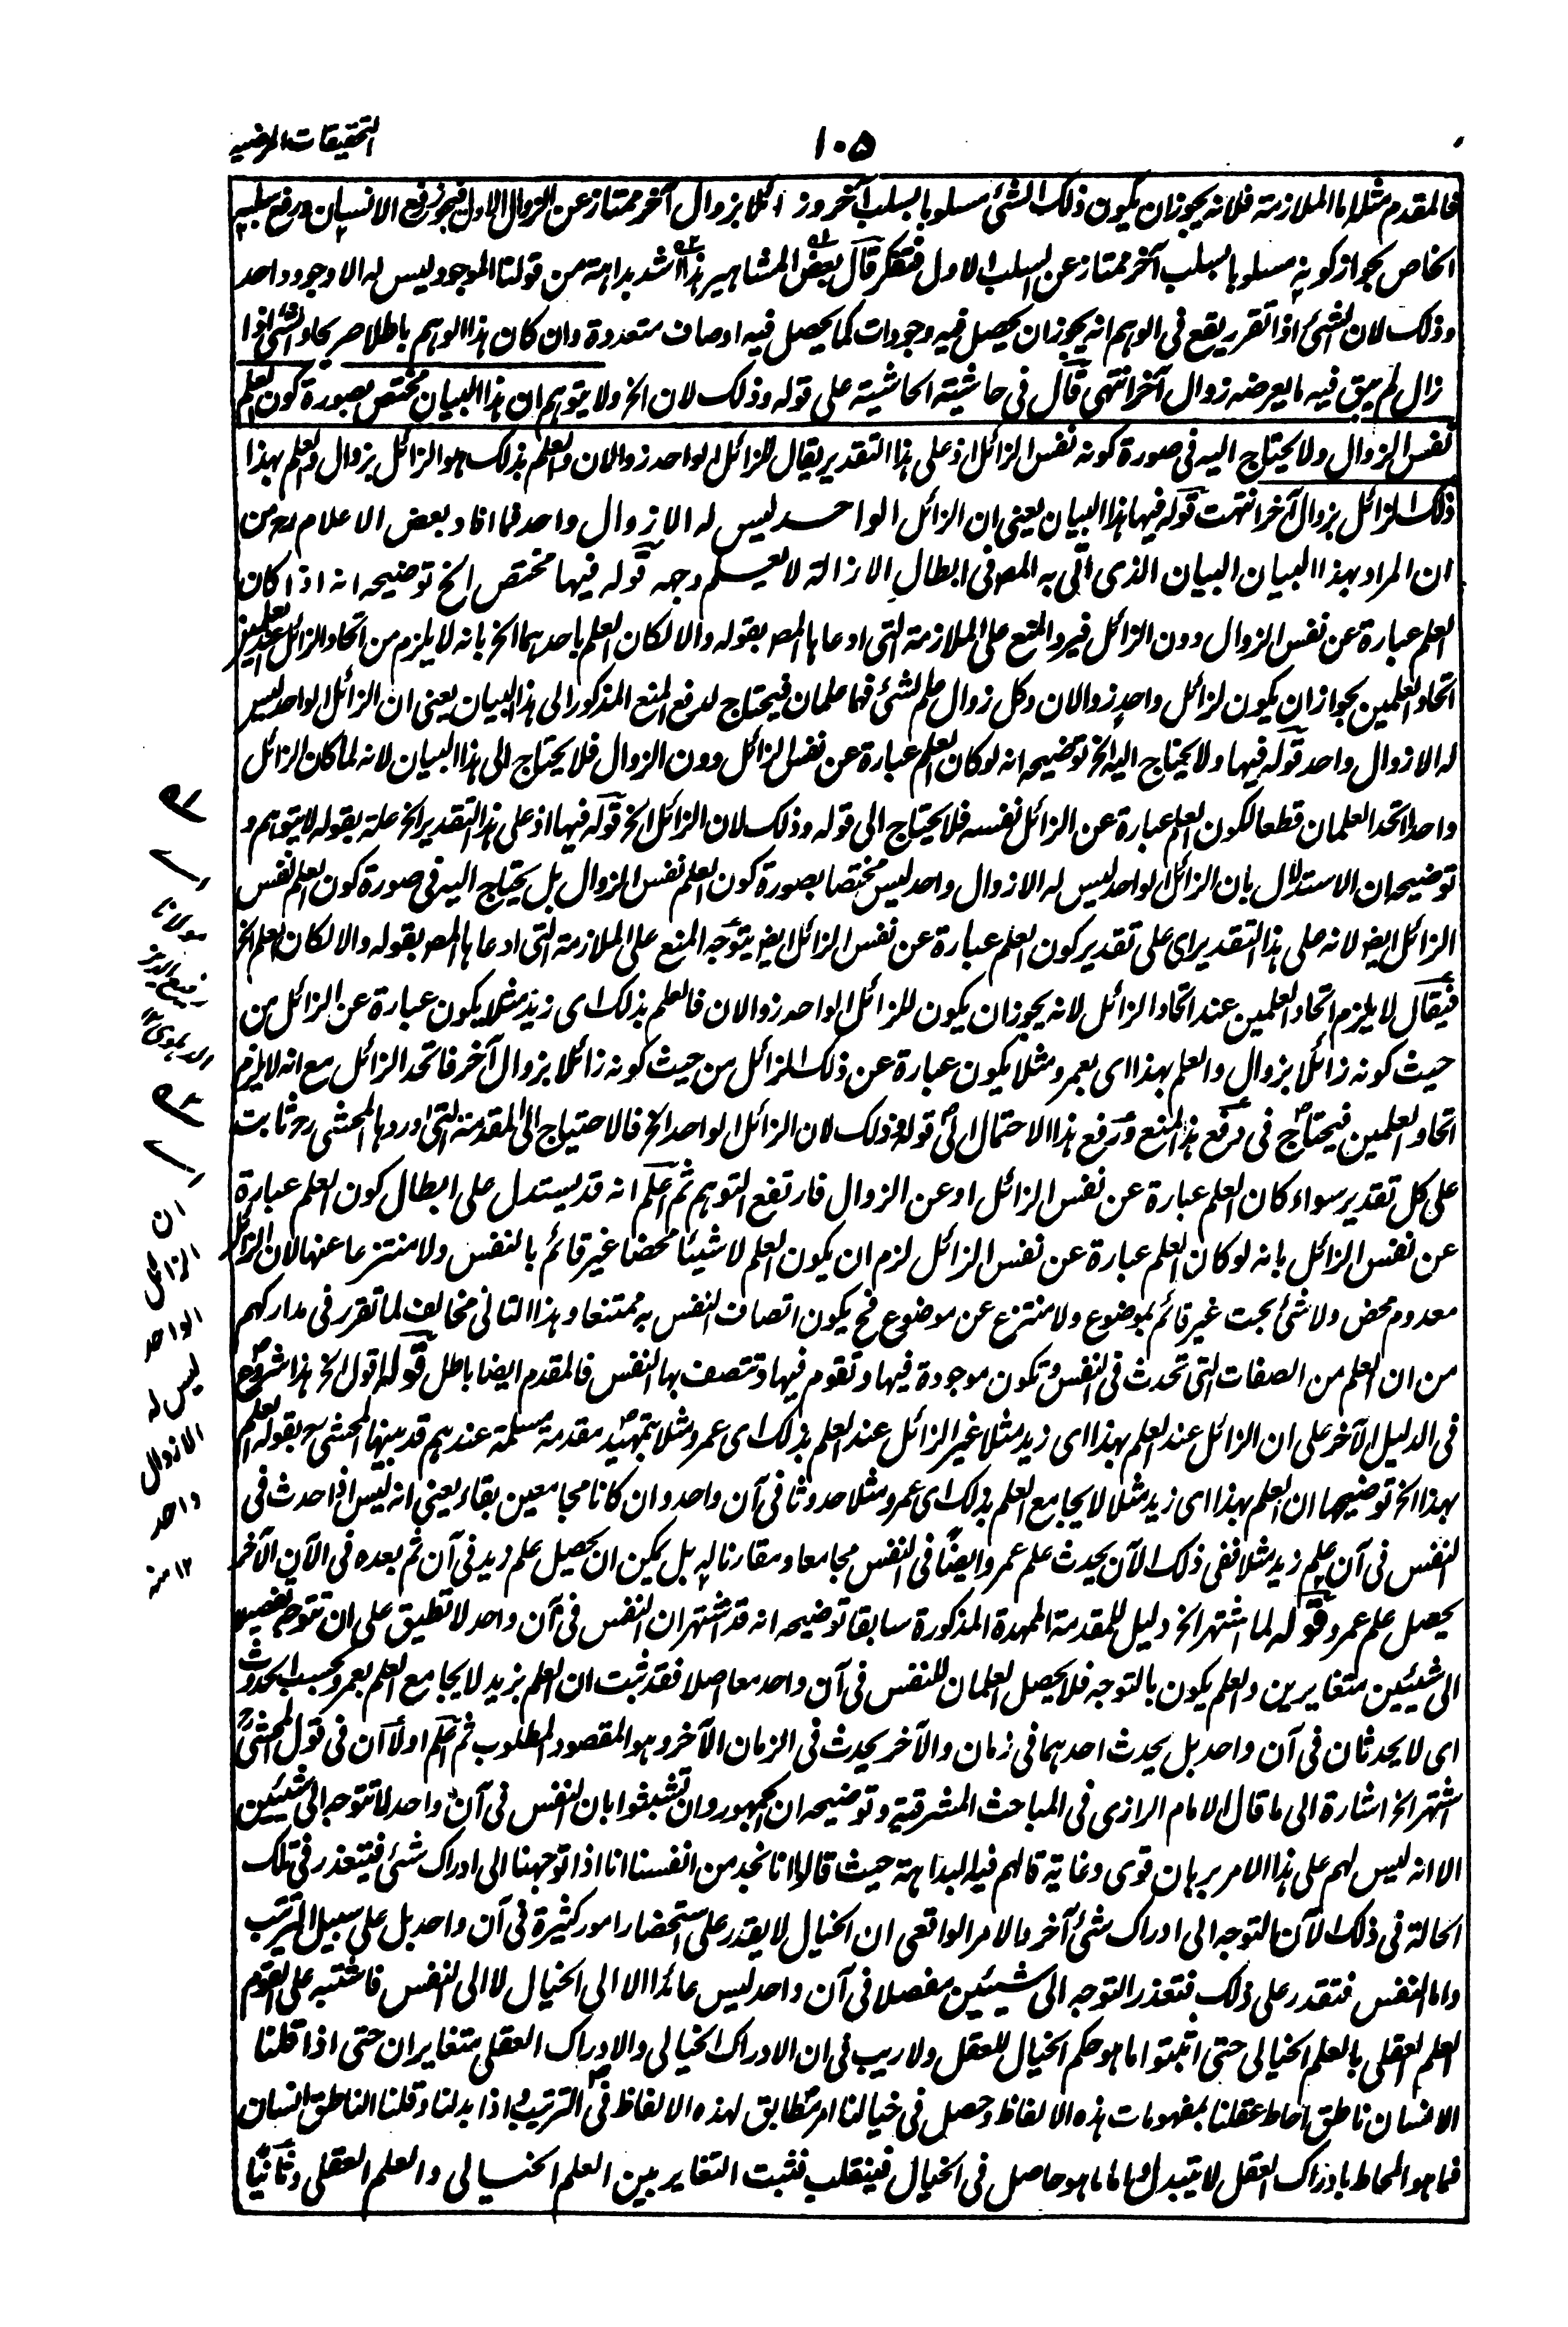 التحقيقات المرضيه
١٠٥
فالمقدم مثله اما الملازمة فلانه يجوز ان يكون ذلك الشئ مسلوبا بسلب آخر وزائلا بزوال آخر ممتاز عن الزوال الاول فيجوز رفع الانسان ورفع سلبه
الخاص بجواز كونه مسلوبا بسلب آخر ممتاز عن السلب الاول فتفكر قال بعض المشاهير هذا اشد بداهة من قولنا الموجود ليس له الا وجود واحد
وذلك لان الشئ اذا تقرر يقع فى الوهم انه يجوز ان يحصل فيه وجودات كما يحصل فيه اوصاف متعددة وان كان هذا الوهم باطلا صريحا والشئ اذا
زال لم يبق فيه ما يعرضه زوال آخر انتهى قال فى حاشية الحاشية على قوله وذلك لان الخ ولا يتوهم ان هذا البيان مختص بصورة كون العلم
نفس الزوال ولا يحتاج اليه فى صورة كونه نفس الزائل اذ على هذا التقدير يقال للزائل الواحد زوالان والعلم بذلك هو الزائل بزوال والعلم بهذا
ذلك الزائل بزوال آخر انتهت قوله فيها هذا البيان يعنى ان الزائل الواحد ليس له الا زوال واحد فما افاد بعض الاعلام رح من
ان المراد بهذا البيان البيان الذى اتى به المص فى ابطال الازالة لا يعلم وجهه قوله فيها مختص الخ توضيحه انه اذا كان
العلم عبارة عن نفس الزوال دون الزائل فيرد المنع على الملازمة التى ادعاها المص بقوله والا لكان العلم باحدهما الخ بانه لا يلزم من اتحاد الزائل عند العلمين
اتحاد العلمين بجواز ان يكون لزائل واحد زوالان وكل زوال علم لشئ فهما علمان فيحتاج لدفع المنع المذكور الى هذا البيان يعنى ان الزائل الواحد ليس
له الا زوال واحد قوله فيها ولا يحتاج اليه الخ توضيحه انه لو كان العلم عبارة عن نفس الزائل دون الزوال فلا يحتاج الى هذا البيان لانه لما كان الزائل
واحدا اتحد العلمان قطعا لكون العلم عبارة عن الزائل نفسه فلا يحتاج الى قوله وذلك لان الزائل الخ قوله فيها اذ على هذا التقدير الخ علة بقوله لا يتوهم و
توضيحه ان الاستدلال بان الزائل الواحد ليس له الا زوال واحد ليس مختصا بصورة كون العلم نفس الزوال بل يحتاج اليه فى صورة كون العلم نفس
الزائل ايض لانه على هذا التقدير اى على تقدير كون العلم عبارة عن نفس الزائل ايض يتوجه المنع على الملازمة التى ادعاها المص بقوله والا لكان العلم الخ
فيقال لا يلزم اتحاد العلمين عند اتحاد الزائل لانه يجوز ان يكون للزائل الواحد زوالان فالعلم بذلك اى زيد مثلا يكون عبارة عن الزائل من
حيث كونه زائلا بزوال والعلم بهذا اى بعمرو مثلا يكون عبارة عن ذلك الزائل من حيث كونه زائلا بزوال آخر فاتحد الزائل مع انه لا يلزم
اتحاد العلمين فيحتاج فى دفع هذا المنع ورفع هذا الاحتمال الى قوله وذلك لان الزائل الواحد الخ فالاحتياج الى المقدمة التى اوردها المحشى رح ثابت
على كل تقدير سواء كان العلم عبارة عن نفس الزائل او عن الزوال فارتفع التوهم ثم اعلم انه قد يستدل على ابطال كون العلم عبارة
عن نفس الزائل بانه لو كان العلم عبارة عن نفس الزائل لزم ان يكون العلم لا شيئا محضا غير قائم بالنفس ولا منتزعا عنها لان الزائل
معدوم محض ولا شئ بحت غير قائم بموضوع ولا منتزع عن موضوع فح يكون اتصاف النفس به ممتنعا وهذا التالى مخالف لما تقرر فى مداركهم
من ان العلم من الصفات التى تحدث فى النفس وتكون موجودة فيها وتقوم فيها وتتصف بها النفس فالمقدم ايضا باطل قوله اقول الخ هذا شروع
فى الدليل الآخر على ان الزائل عند العلم بهذا اى زيد مثلا غير الزائل عند العلم بذلك اى عمرو مثلا بتمهيد مقدمة مسلمة عندهم قد بينها المحشى رح بقوله العلم
بهذا الخ توضيحها ان العلم بهذا اى زيد مثلا لا يجامع العلم بذلك اى عمرو مثلا حدوثا فى آن واحد وان كانا مجامعين بقاء يعنى انه ليس اذا حدث فى
النفس فى آن علم زيد مثلا ففى ذلك الآن يحدث علم عمرو ايضا فى النفس مجامعا ومقارنا له بل يمكن ان يحصل علم زيد فى آن ثم بعده فى الآن الآخر
يحصل علم عمرو قوله لما اشتهر الخ دليل للمقدمة الممهدة المذكورة سابقا توضيحه انه قد اشتهر ان النفس فى آن واحد لا تطيق على ان تتوجه بقصيه
الى شيئين متغايرين والعلم يكون بالتوجه فلا يحصل العلمان للنفس فى آن واحد معا اصلا فقد ثبت ان العلم بزيد لا يجامع العلم بعمرو بحسب الحدوث
اى لا يحدثان فى آن واحد بل يحدث احدهما فى زمان والآخر يحدث فى الزمان الآخر وهو المقصود المطلوب ثم اعلم اولا ان فى قول المحشى رح
اشتهر الخ اشارة الى ما قال الامام الرازى فى المباحث المشرقية وتوضيحه ان الجمهور وان تشبثوا بان النفس فى آن واحد لا تتوجه الى شيئين
الا انه ليس لهم على هذا الامر برهان قوى وغاية قالهم فيه البداهة حيث قالوا انا نجد من انفسنا انا اذا توجهنا الى ادراك شئ فيتعذر فى تلك
الحالة فى ذلك الآن التوجه الى ادراك شئ آخر والامر الواقعى ان الخيال لا يقدر على استحضار امور كثيرة فى آن واحد بل على سبيل الترتب
واما النفس فتقدر على ذلك فتعذر التوجه الى شيئين مفصلا فى آن واحد ليس عائدا الا الى الخيال لا الى النفس فاشتبه على القوم
العلم العقلى بالعلم الخيالى حتى اثبتوا ما هو حكم الخيال للعقل ولا ريب فى ان الادراك الخيالى والادراك العقلى متغايران حتى اذا قلنا
الانسان ناطق احاط عقلنا بمفهومات هذه الالفاظ وحصل فى خيالنا امر مطابق لهذه الالفاظ فى الترتيب واذا بدلنا وقلنا الناطق انسان
فما هو المحاط بادراك العقل لا يتبدل واما ما هو حاصل فى الخيال فينقلب فثبت التغاير بين العلم الخيالى والعلم العقلى وثانيا
مولانا
رفيع الدين
الدهلوى
ان
الزائل
الواحد
ليس له
الا زوال
واحد
١٢ منه